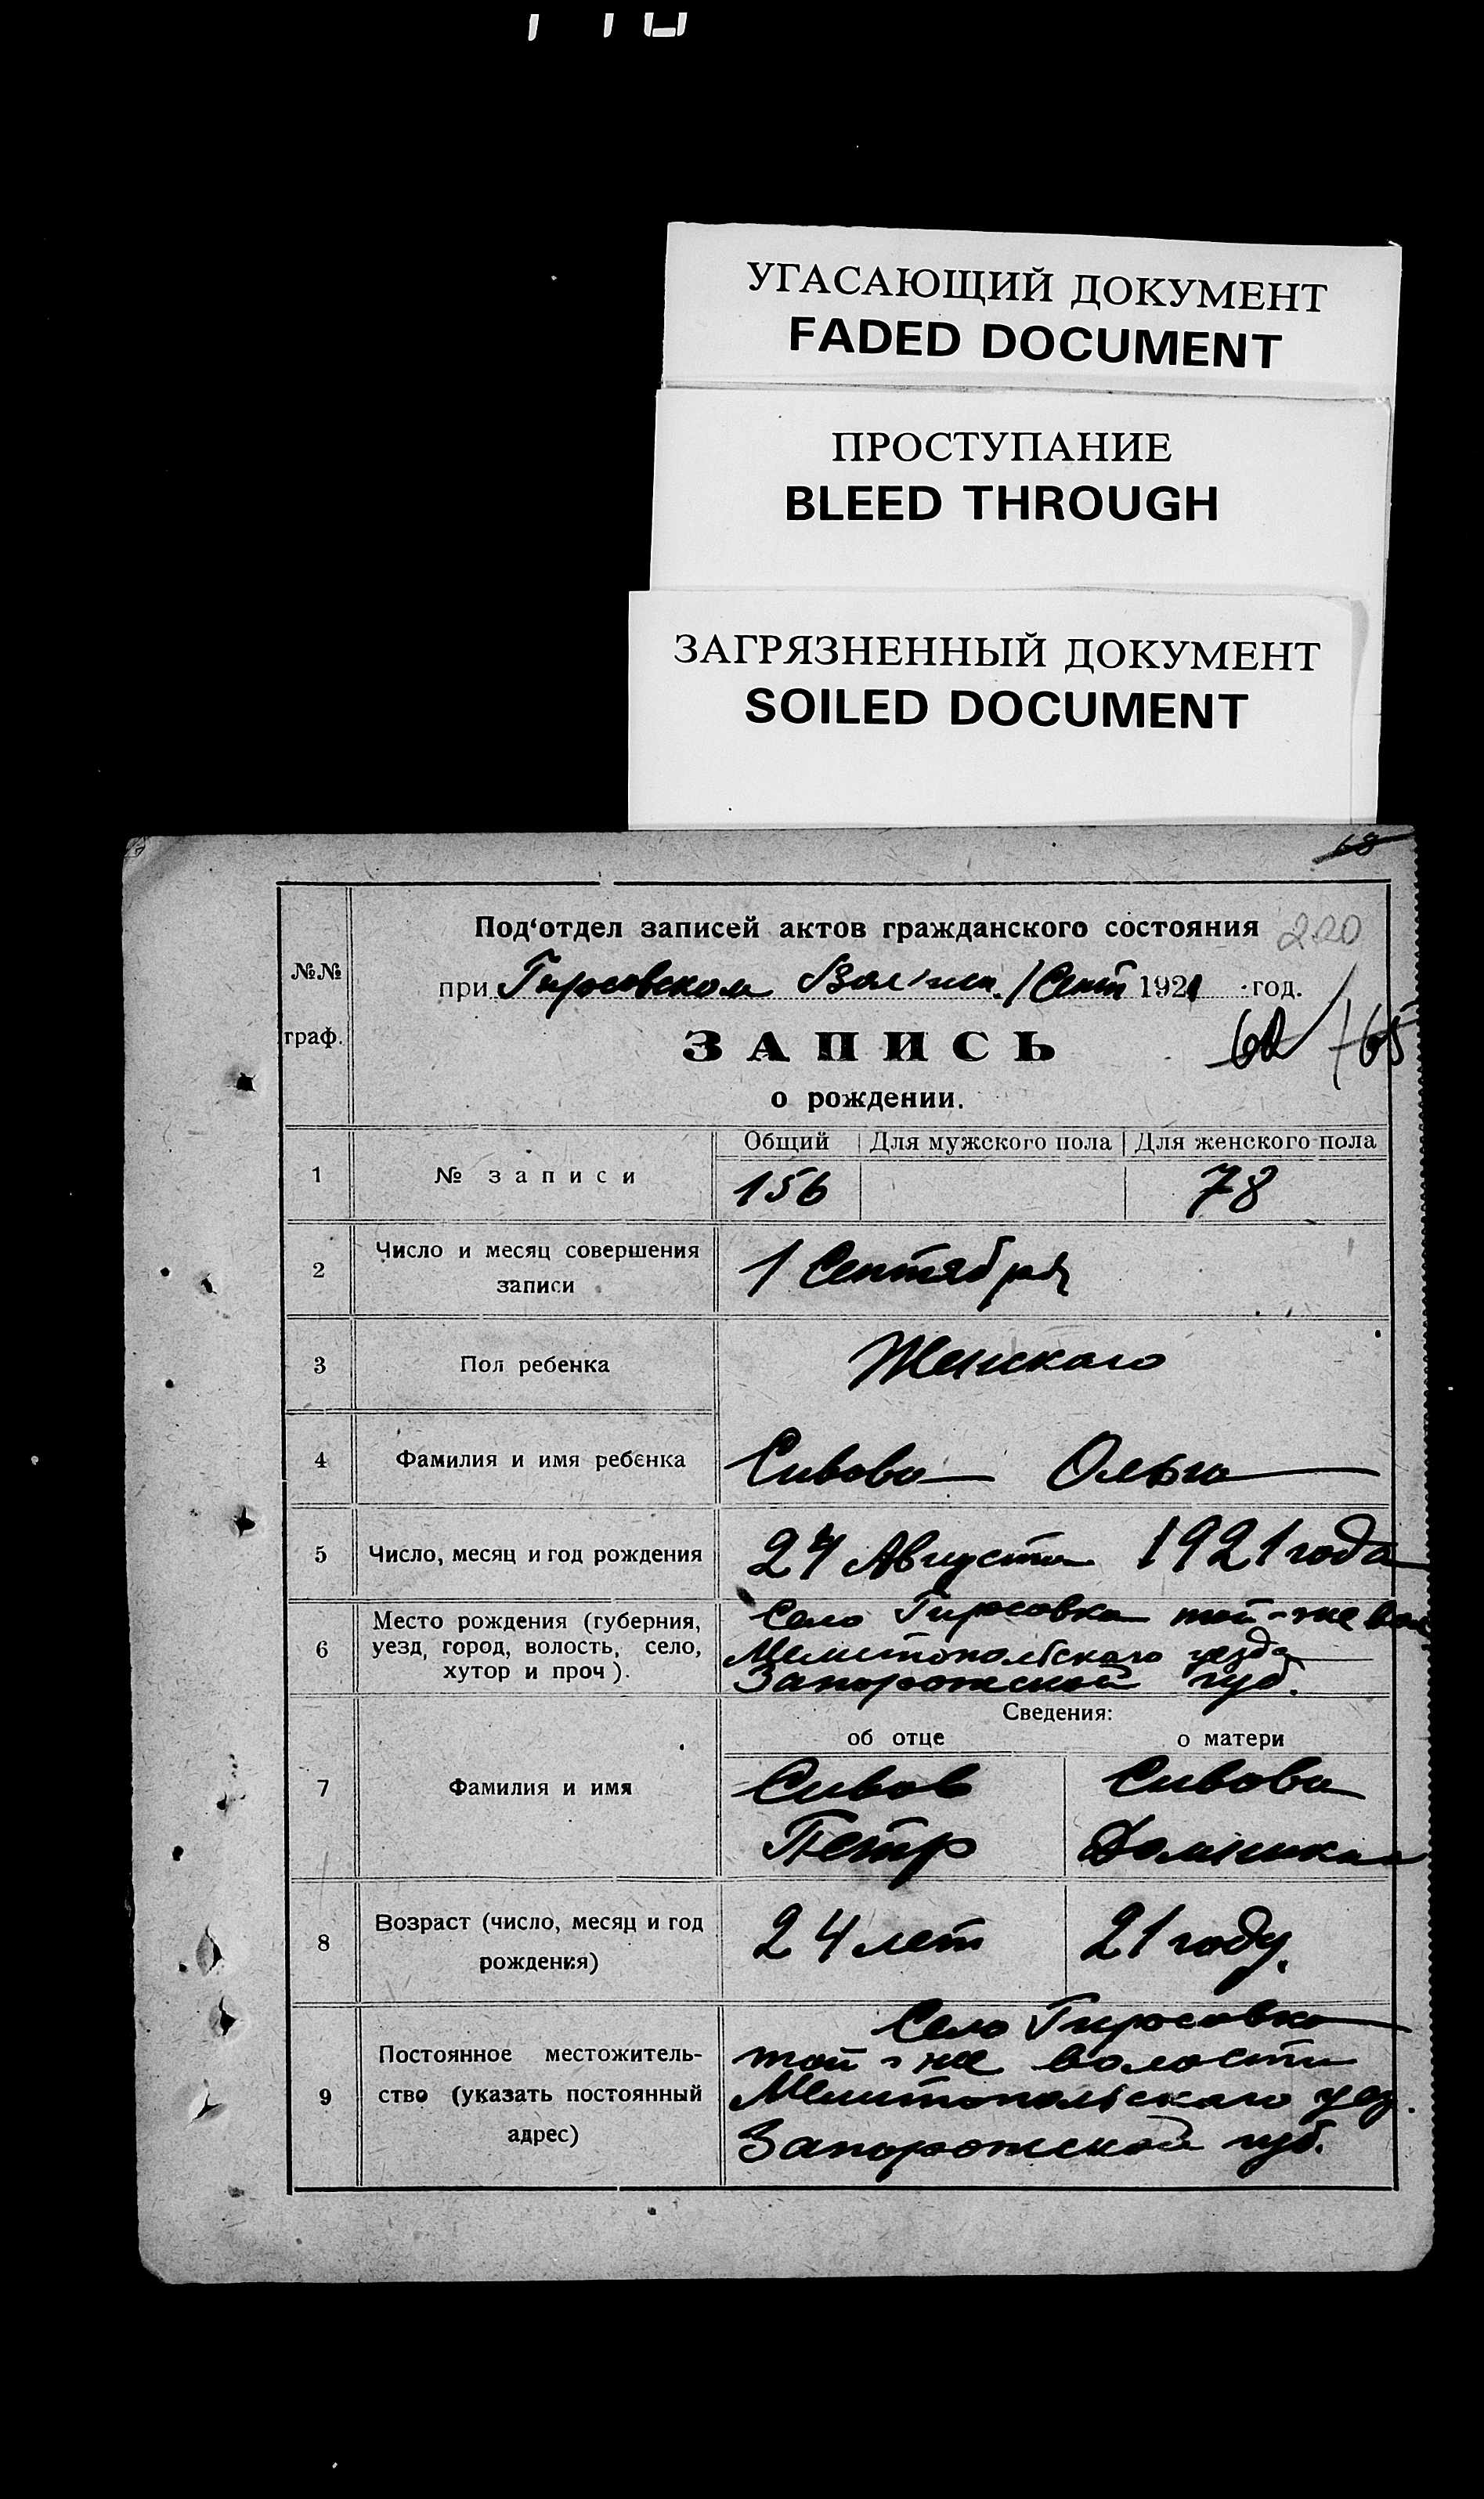 УГАСАЮЩИЙ ДОКУМЕНТ
FADED DOCUMENT
ПРОСТУПАНИЕ
BLEED THROUGH
ЗАГРЯЗНЕННЫЙ ДОКУМЕНТ
SOILED DOCUMENT
68
Под‘отдел записей актов гражданского состояния 220
№№ граф.
при Гирсовском Вол. исп. 1 Сент 1921 год.
ЗАПИСЬ 62 65
о рождении.
Общий Для мужского пола Для женского пола
1 № записи 156 78
2 Число и месяц совершения
записи
1 Сентября
3 Пол ребенка Женскаго
4 Фамилия и имя ребенка Сивова Ольга
5 Число, месяц и год рождения 24 Августа 1921 года
6 Место рождения (губерния,
уезд, город, волость, село,
хутор и проч).
Село Гирсовка той-же вол.
Мелитопольскаго уезда
Запорожской губ.
Сведения:
об отце о матери
7 Фамилия и имя
Сивов Сивова
Петр Домникия
8 Возраст (число, месяц и год
рождения)
24 лет 21 году.
9 Постоянное местожитель-
ство (указать постоянный
адрес)
Село Гирсовка
той-же волости
Мелитопольскаго уез.
Запорожской губ.